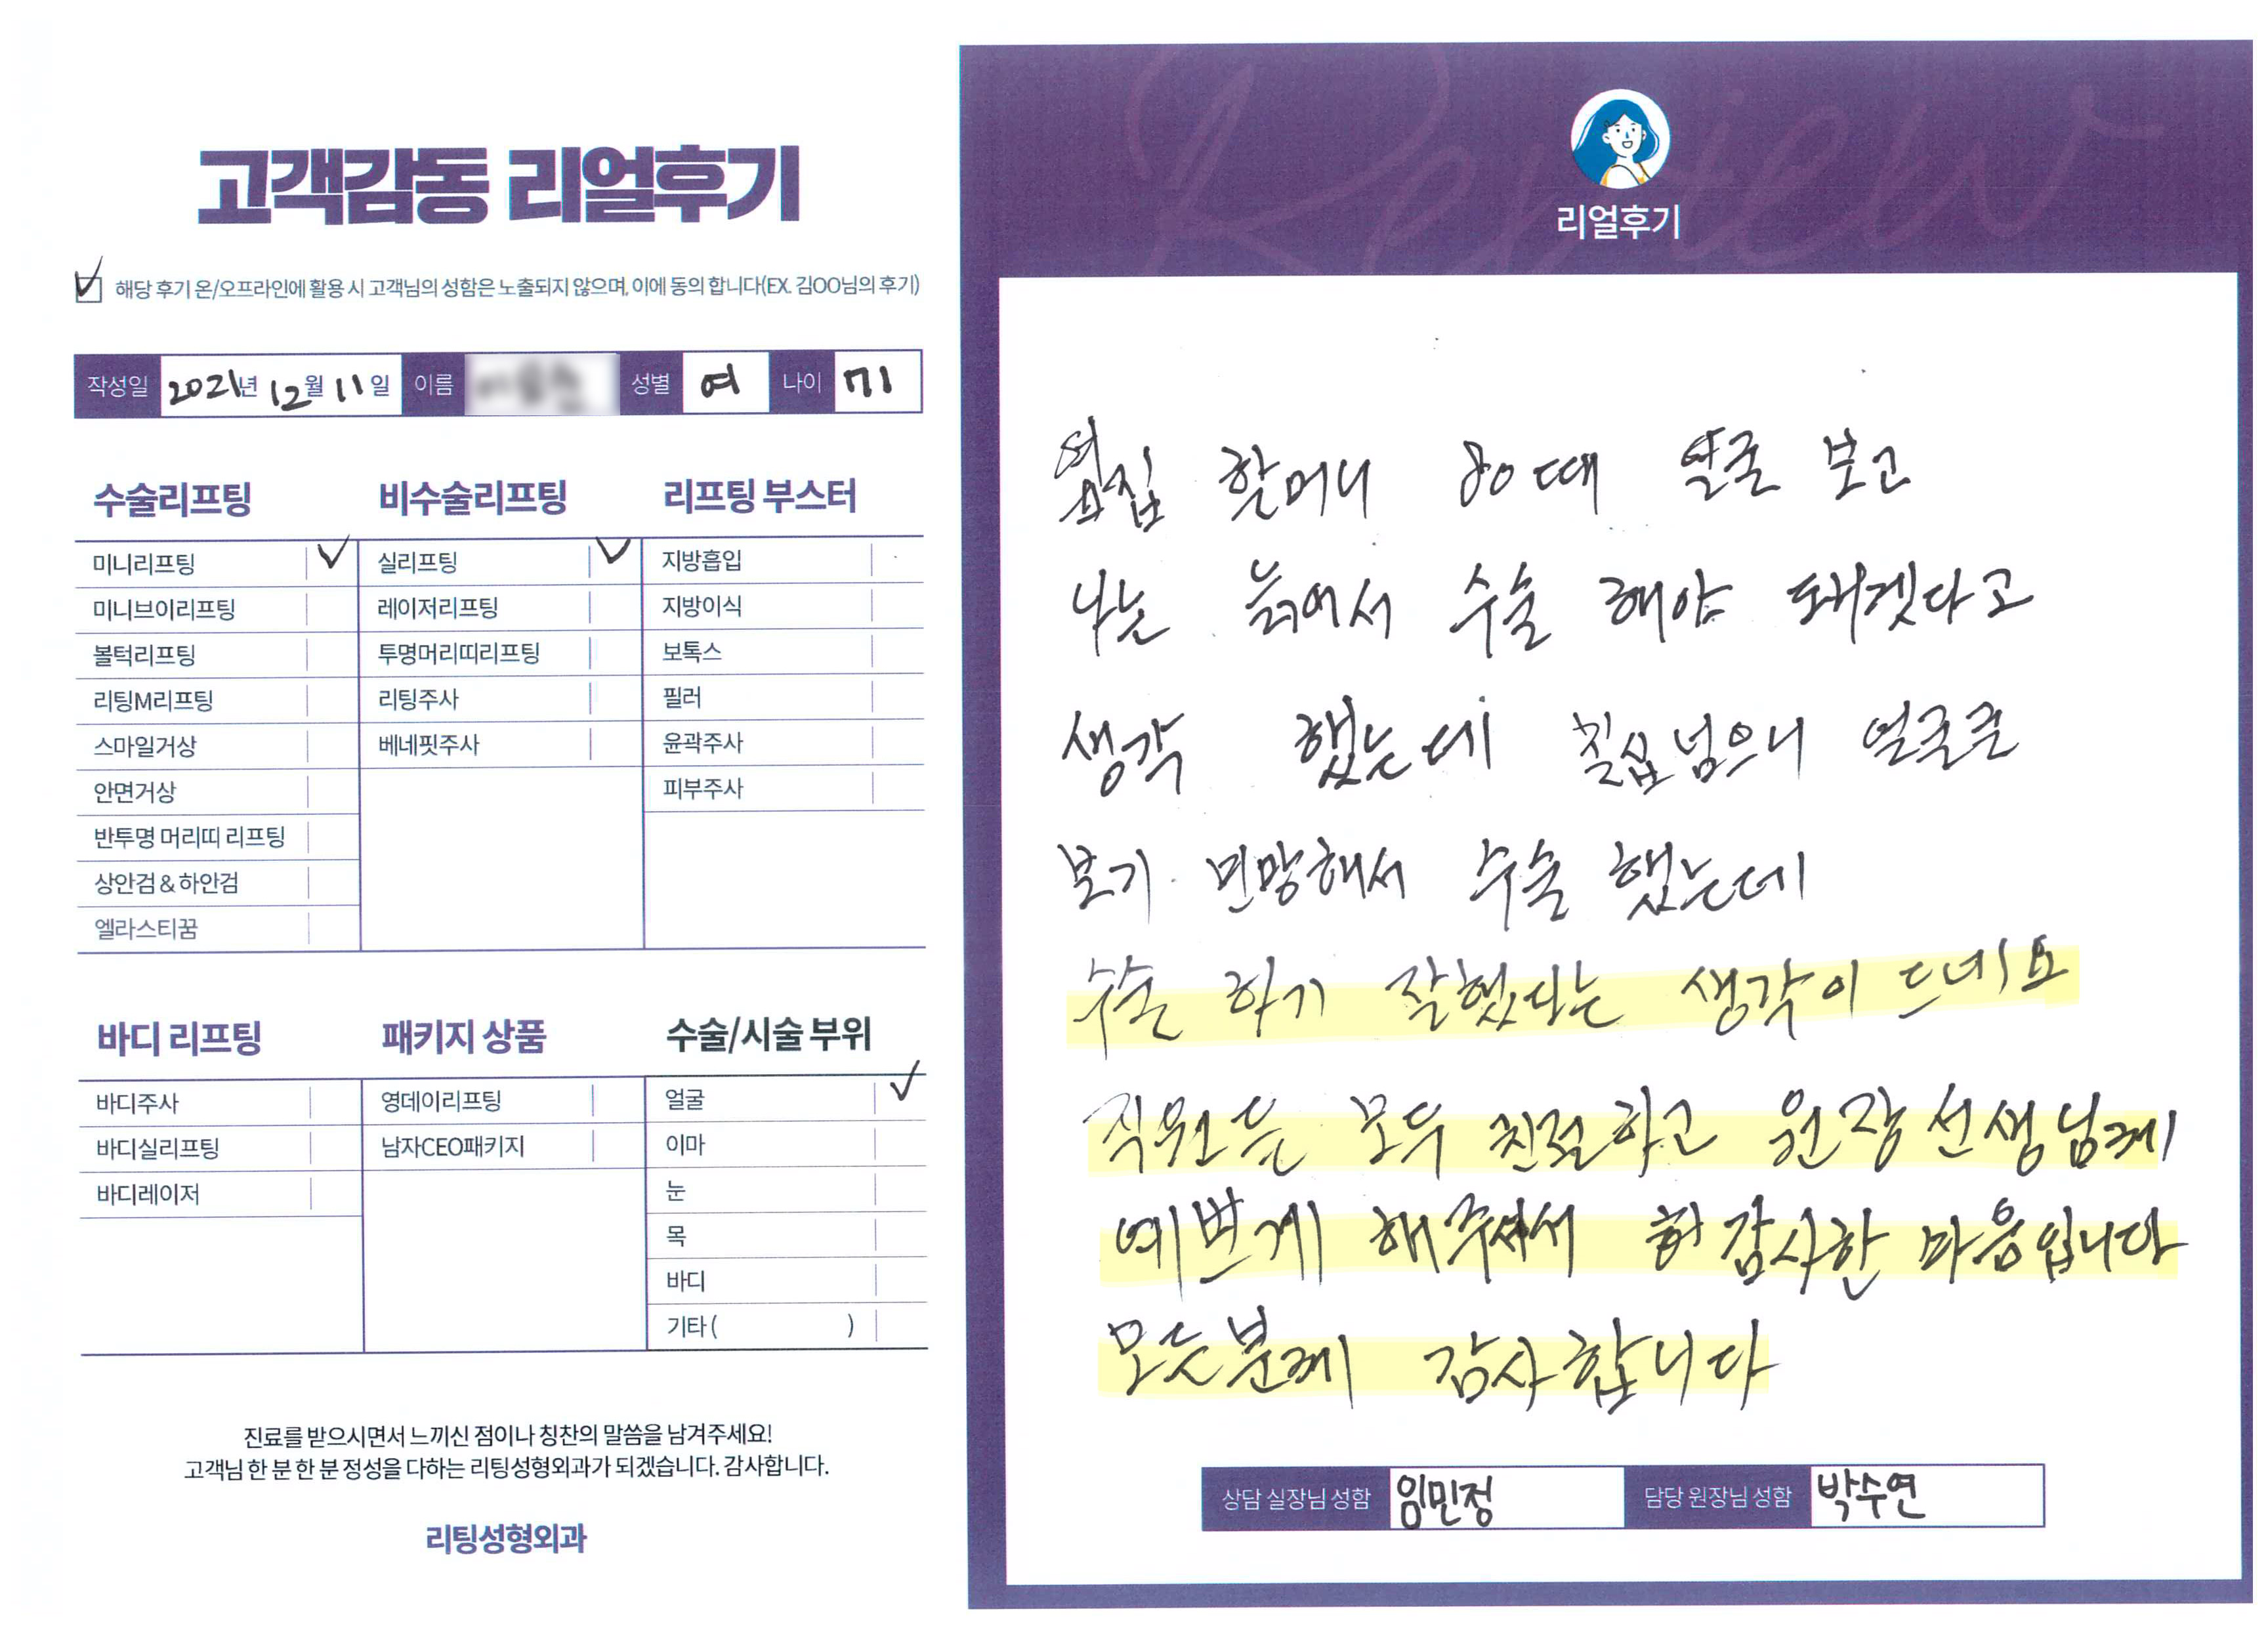 고객감동 리얼후기
해당 후기 온/오프라인에 활용 시 고객님의 성함은 노출되지 않으며, 이에 동의 합니다(EX. 김OO님의 후기)
작성일 2021년 12월 11일 이름 성별 여 나이 71
수술리프팅
미니리프팅
미니브이리프팅
볼턱리프팅
리팅M리프팅
스마일거상
안면거상
반투명 머리띠 리프팅
상안검 & 하안검
엘라스티꿈
비수술리프팅
실리프팅
레이저리프팅
투명머리띠리프팅
리팅주사
베네핏주사
리프팅 부스터
지방흡입
지방이식
보톡스
필러
윤곽주사
피부주사
바디 리프팅
바디주사
바디실리프팅
바디레이저
패키지 상품
영데이리프팅
남자CEO패키지
수술/시술 부위
얼굴
이마
눈
목
바디
기타 ( )
진료를 받으시면서 느끼신 점이나 칭찬의 말씀을 남겨주세요!
고객님 한 분 한 분 정성을 다하는 리팅성형외과가 되겠습니다. 감사합니다.
리팅성형외과
Review
리얼후기
옆집 할머니 80때 얼굴 보고
나는 늙어서 수술 해야 돼겟다고
생각 했는데 칠십넘으니 얼굴을
보기 민망해서 수술 했는데
수술 하기 잘했다는 생각이 드네요
직원들 모두 친절하고 원장선생님께
예쁘게 해주셔서 감사한 마음입니다
모든분께 감사합니다
상담 실장님 성함 임민정 담당 원장님 성함 박수연